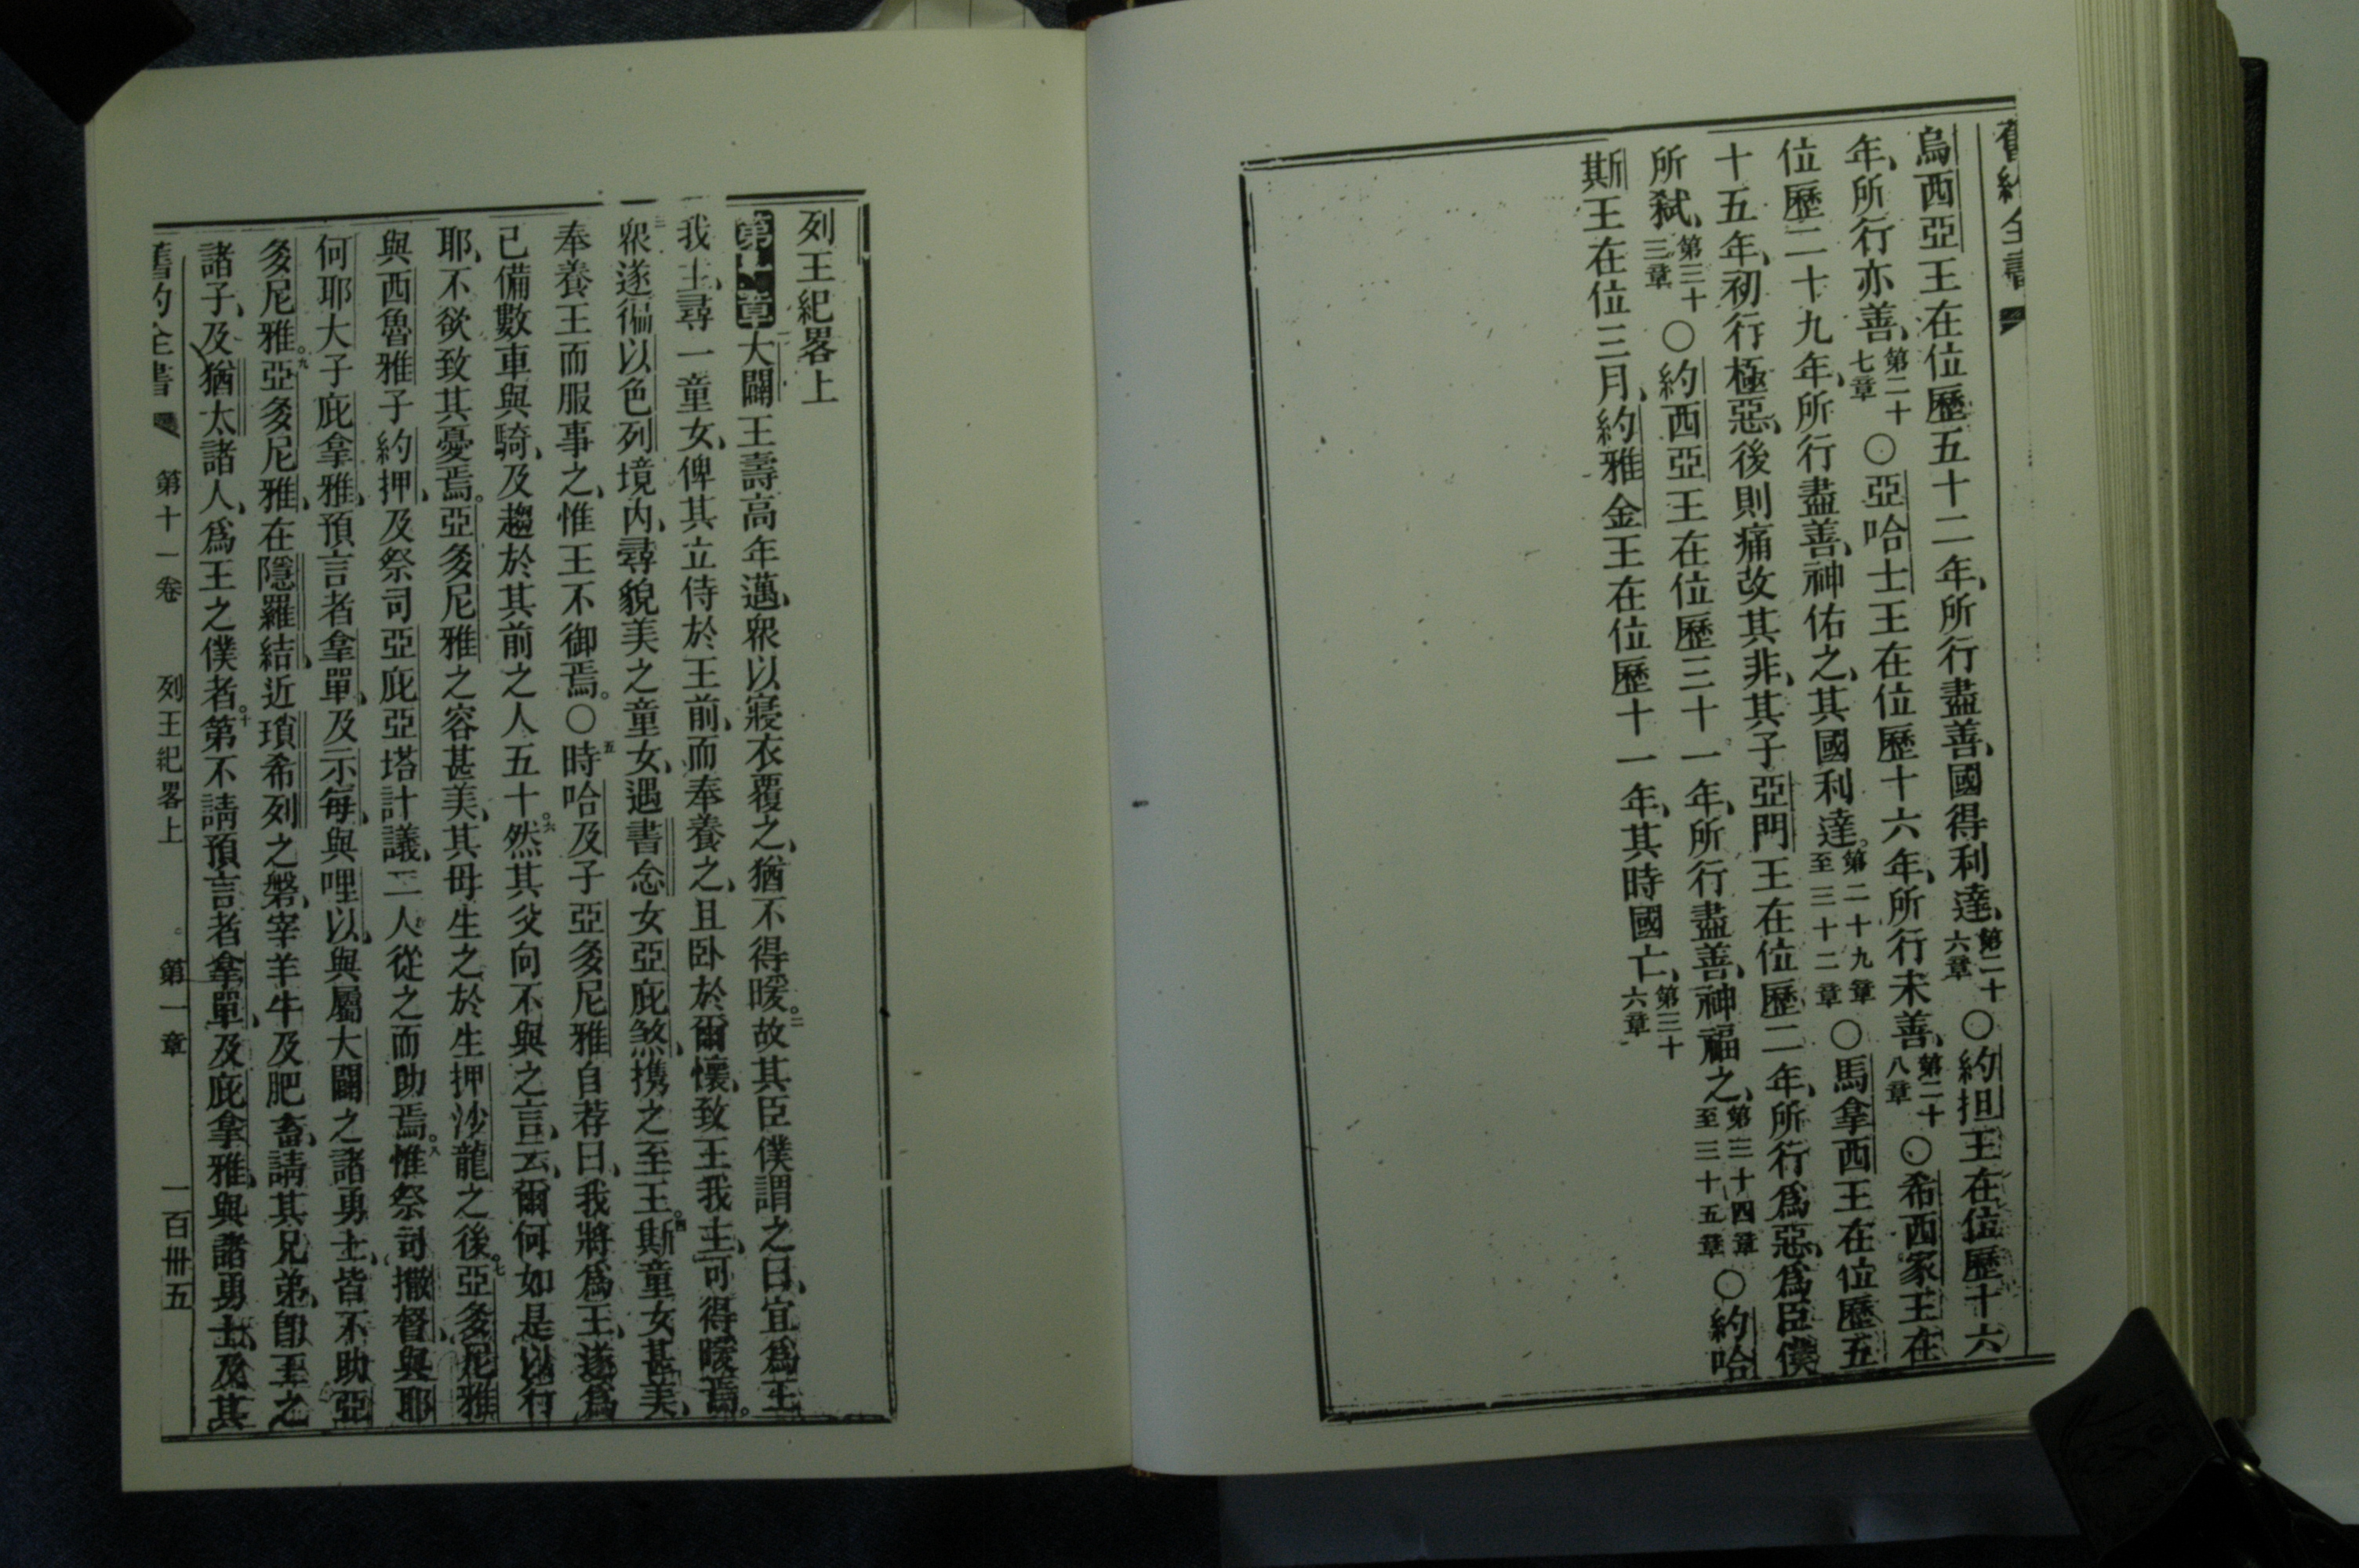 舊約全書
烏西亞王在位歷五十二年、所行盡善、國得利達、第二十六章○約担王在位歷十六
年、所行亦善、第二十七章○亞哈士王在位歷十六年、所行未善、第二十八章○希西家王在
位歷二十九年、所行盡善、神佑之、其國利達。第二十九章至三十二章○馬拿西王在位歷五
十五年、初行極惡、後則痛改其非、其子亞門王在位歷二年、所行爲惡、爲臣僕
所弒、第三十三章○約西亞王在位歷三十一年、所行盡善、神福之、第三十四章至三十五章○約哈
斯王在位三月、約雅金王在位歷十一年、其時國亡、第三十六章
列王紀畧上
第一章大闢王壽高年邁、衆以寢衣覆之、猶不得暖。二故其臣僕謂之曰、宜爲王
我主、尋一童女、俾其立侍於王前、而奉養之、且卧於爾懷、致王我主、可得暖焉。
三衆遂徧以色列境內、尋貌美之童女、遇書念女亞庇煞、携之至王。四斯童女甚美、
奉養王而服事之、惟王不御焉。○五時哈及子亞多尼雅自荐曰、我將爲王、遂爲
己備數車與騎、及趨於其前之人五十。六然其父向不與之言、云、爾何如是以行
耶、不欲致其憂焉。亞多尼雅之容甚美、其母生之於生押沙龍之後。七亞多尼雅
與西魯雅子約押、及祭司亞庇亞塔計議、二人從之而助焉。八惟祭司撒督、與耶
何耶大子庇拿雅、預言者拿單、及示每、與哩以、與屬大闢之諸勇士、皆不助亞
多尼雅。九亞多尼雅、在隱羅結、近瑣希列之磐、宰羊牛及肥畜、請其兄弟、卽王之
諸子、及猶太諸人、爲王之僕者。十第不請預言者拿單、及庇拿雅、與諸勇士、及其
舊約全書 第十一卷 列王紀畧上 第一章 一百卅五